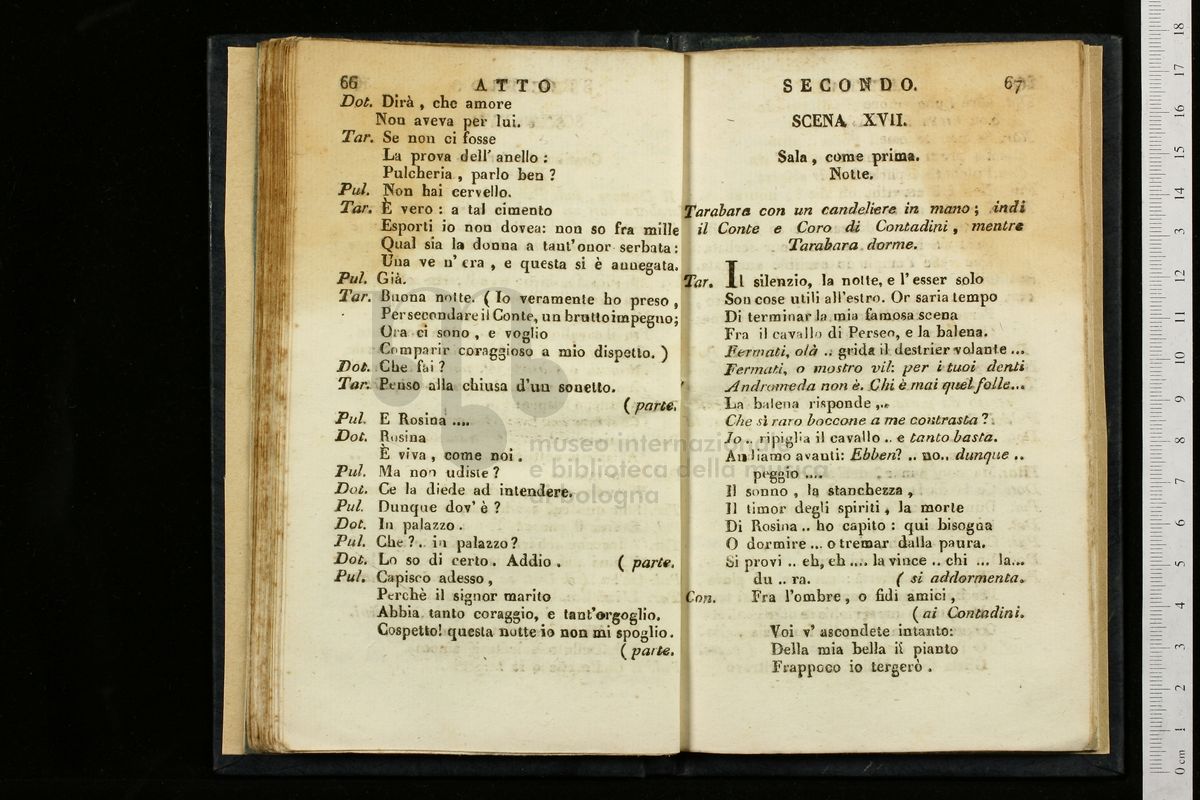 66 ATTO
Dot. Dirà , che amore
Non aveva per lui.
Tar. Se non ci fosse
La prova dell' anello :
Pulcheria , parlo ben ?
Pul. Non hai cervello.
Tar. È vero : a tal cimento
Esporti io non dovea: non so fra mille
Qual sia la donna a tant' onor serbata:
Una ve n' era , e questa si è annegata.
Pul. Già.
Tar. Buona notte. ( Io veramente ho preso ,
Per secondare il Conte, un brutto impegno;
Ora ci sono , e voglio
Comparir coraggioso a mio dispetto. )
Dot. Che fai ?
Tar. Penso alla chiusa d'un sonetto.
( parte.
Pul. E Rosina ....
Dot. Rosina
È viva , come noi .
Pul. Ma non udiste ?
Dot. Ce la diede ad intendere.
Pul. Dunque dov' è ?
Dot. In palazzo .
Pul. Che ? .. in palazzo ?
Dot. Lo so di certo . Addio . ( parte.
Pul. Capisco adesso ,
Perchè il signor marito
Abbia tanto coraggio, e tant'orgoglio.
Cospetto! questa notte io non mi spoglio.
( parte.
SECONDO. 67
SCENA XVII.
Sala , come prima.
Notte.
Tarabara con un candeliere in mano ; indi
il Conte e Coro di Contadini , mentre
Tarabara dorme.
Tar. Il silenzio, la notte, e l' esser solo
Son cose utili all'estro. Or saria tempo
Di terminar la mia famosa scena
Fra il cavallo di Perseo, e la balena.
Fermati, olà .. grida il destrier volante ...
Fermati, o mostro vil: per i tuoi denti
Andromeda non è. Chi è mai quel folle...
La balena risponde ...
Che sì raro boccone a me contrasta ?
Io .. ripiglia il cavallo .. e tanto basta.
Andiamo avanti: Ebben? .. no.. dunque ..
peggio ....
Il sonno , la stanchezza ,
Il timor degli spiriti , la morte
Di Rosina .. ho capito : qui bisogna
O dormire ... o tremar dalla paura.
Si provi .. eh, eh .... la vince .. chi ... la...
du .. ra. ( si addormenta.
Con. Fra l'ombre , o fidi amici ,
( ai Contadini.
Voi v' ascondete intanto:
Della mia bella il pianto
Frappoco io tergerò .
museo internazionale
e biblioteca della musica
di bologna
0 cm 1 2 3 4 5 6 7 8 9 10 11 12 13 14 15 16 17 18